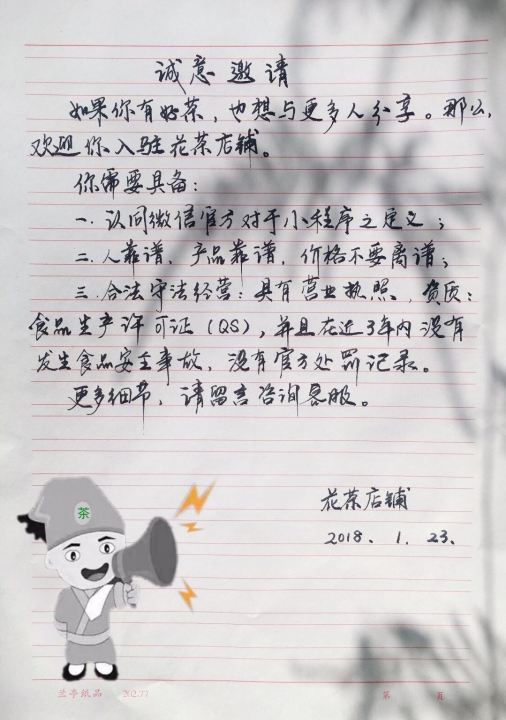 诚意邀请
如果你有好茶，也想与更多人分享。那么，
欢迎你入驻花茶店铺。
你需要具备：
一．认同微信官方对于小程序之定义；
二．人靠谱，产品靠谱，价格不要离谱；
三．合法守法经营：具有营业执照，资质：
食品生产许可证（QS），并且在近3年内没有
发生食品安全事故，没有官方处罚记录。
更多细节，请留言咨询客服。
花茶店铺
2018．1．23．
茶
兰亭纸品 202.77
第 页